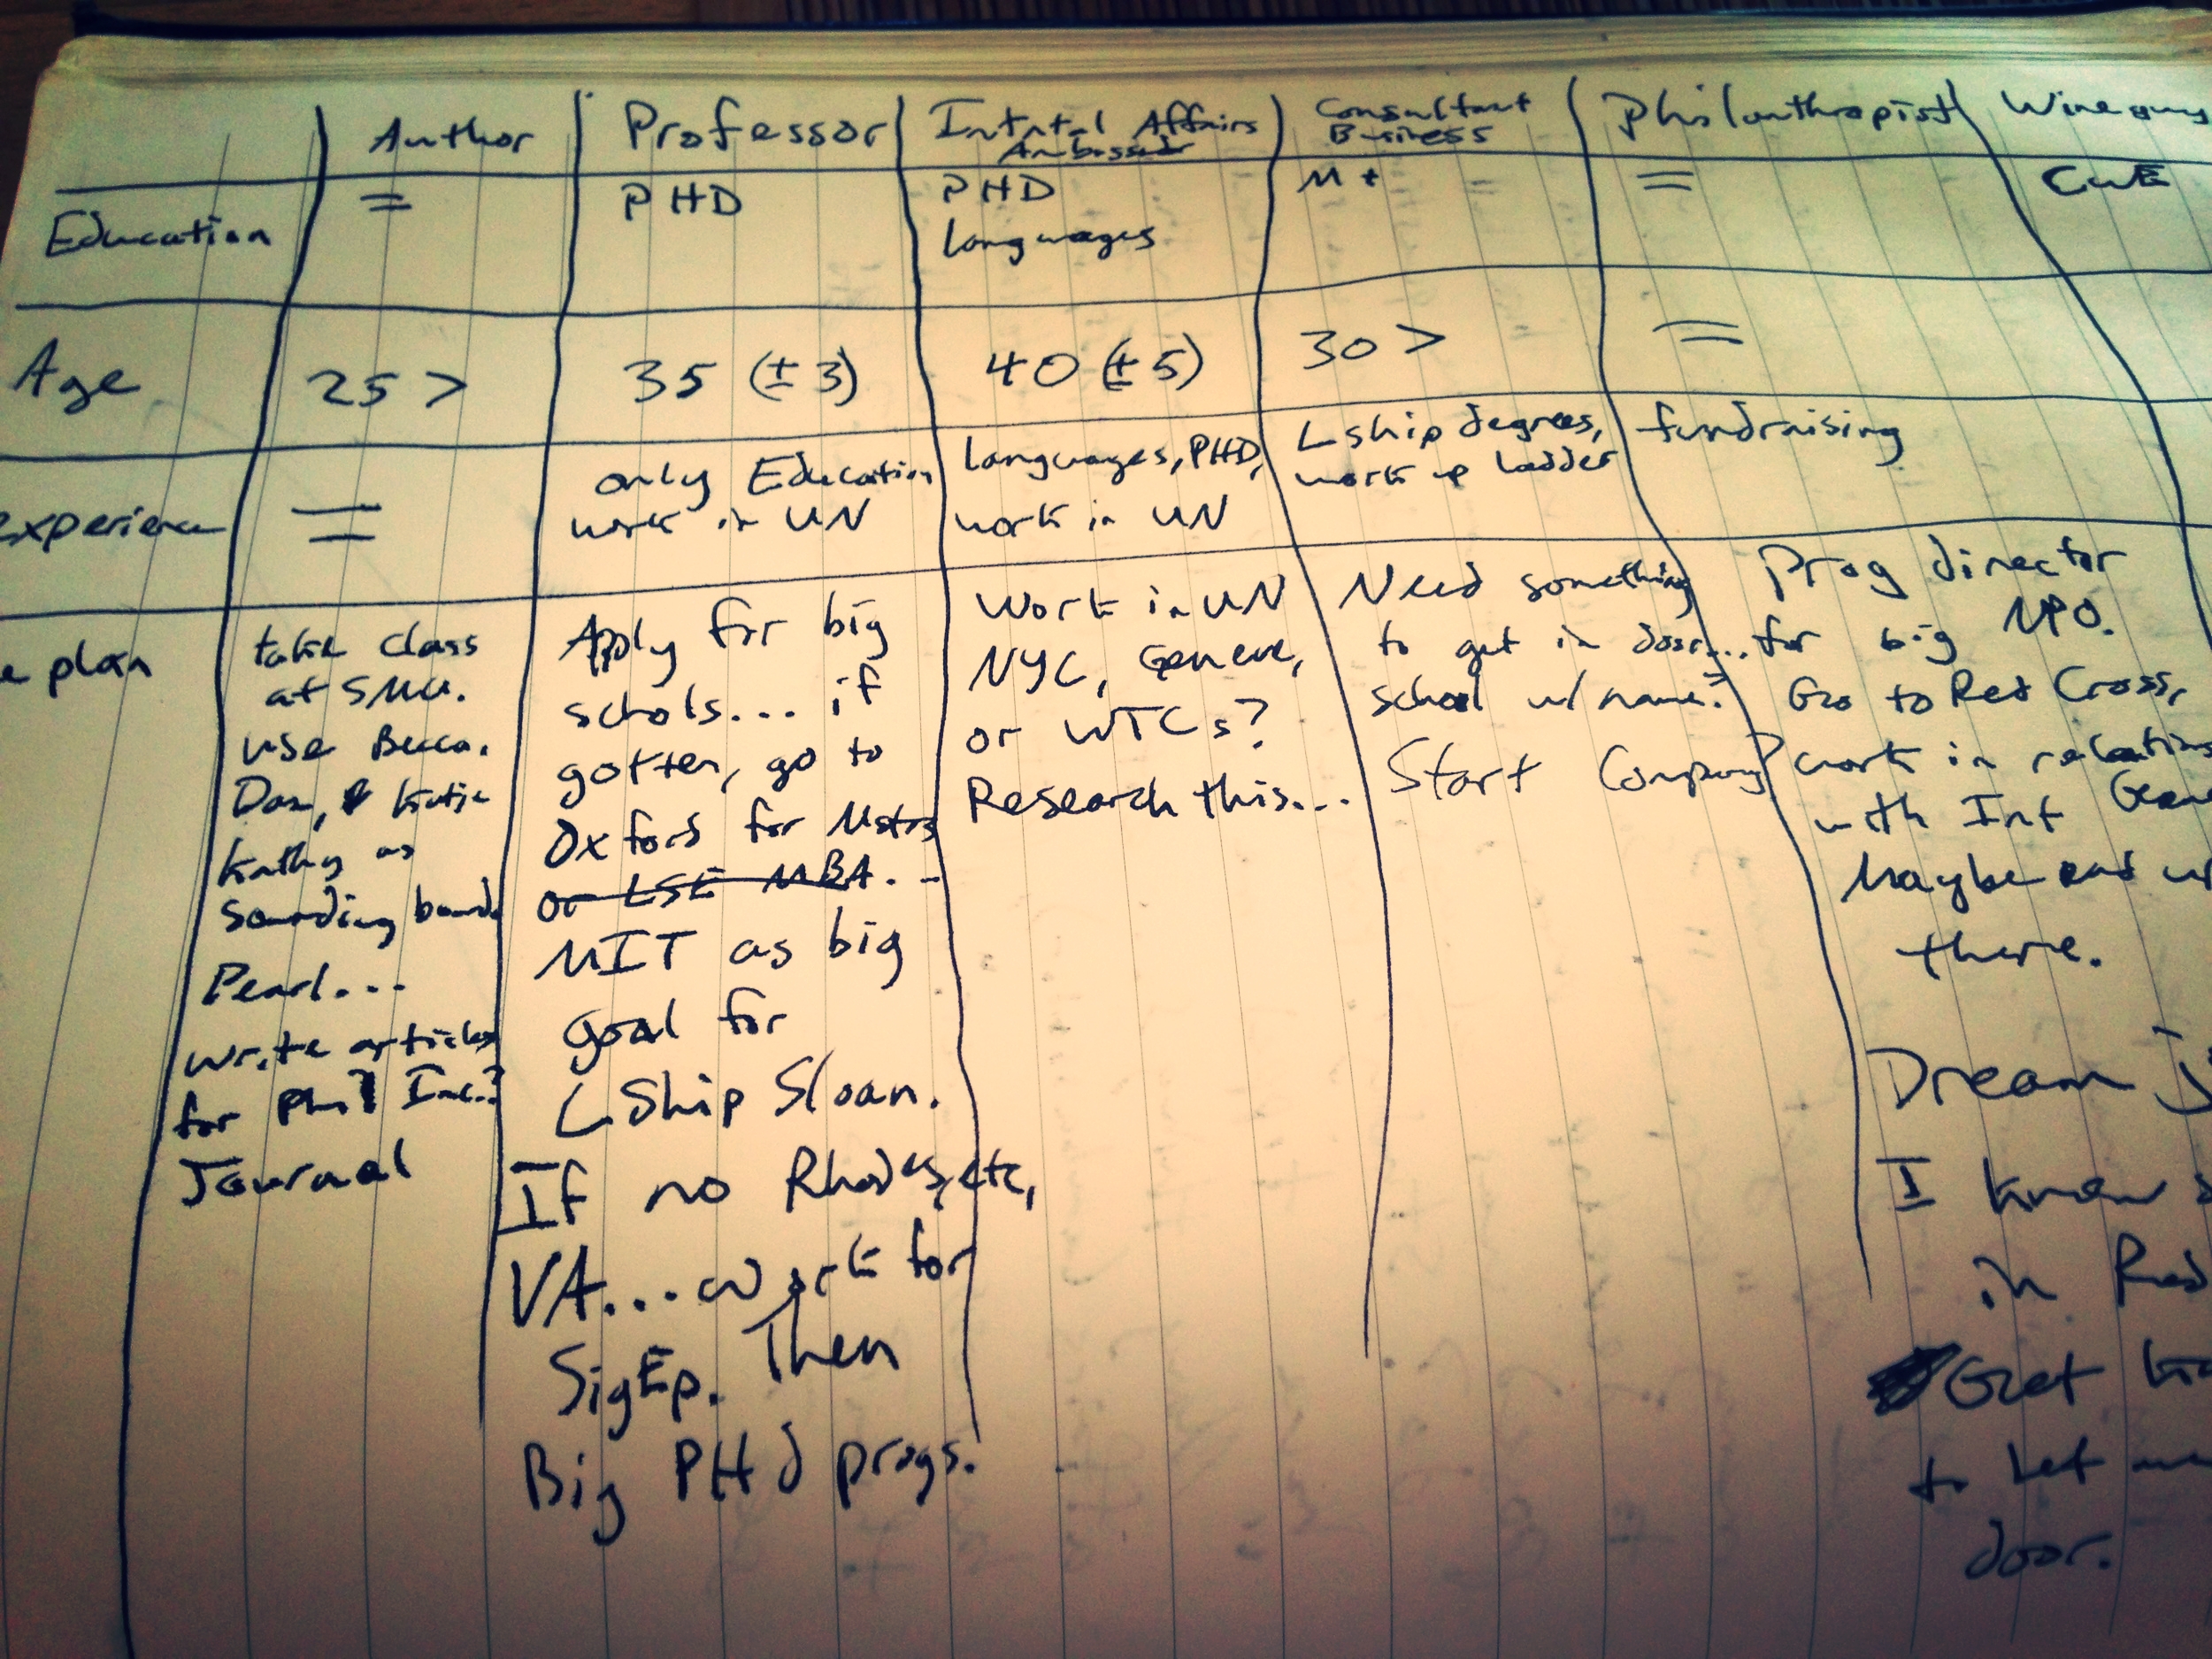 Author Professor Intntal Affairs Consultant Philanthropist Wine guy
Ambassador Business
Education = PHD PHD M+ = CWE
languages
Age 25 > 35 (± 3) 40 (± 5) 30 > =
experience = only Education languages, PHD, Lship degrees, fundraising
work in UN work in UN work up ladder
plan
take class
at SMU.
use Becca,
Dan, & Katie
Kathy as
sounding board
Pearl...
write articles
for Phil Inc.?
Journal
Apply for big
schols... if
gotten, go to
Oxford for Mstrs
or LSE MBA...
MIT as big
goal for
LShip Sloan.
If no Rhodes, etc,
VA... work for
SigEp. Then
Big PHd progs.
Work in UN
NYC, Geneve,
or WTCs?
Research this...
Need something
to get in door...
school w/ name?
Start Company?
Prog director
for big NPO.
Go to Red Cross,
work in relations
with Int
Maybe end up
there.
Dream
I know
in Red
Get
to let me
door.